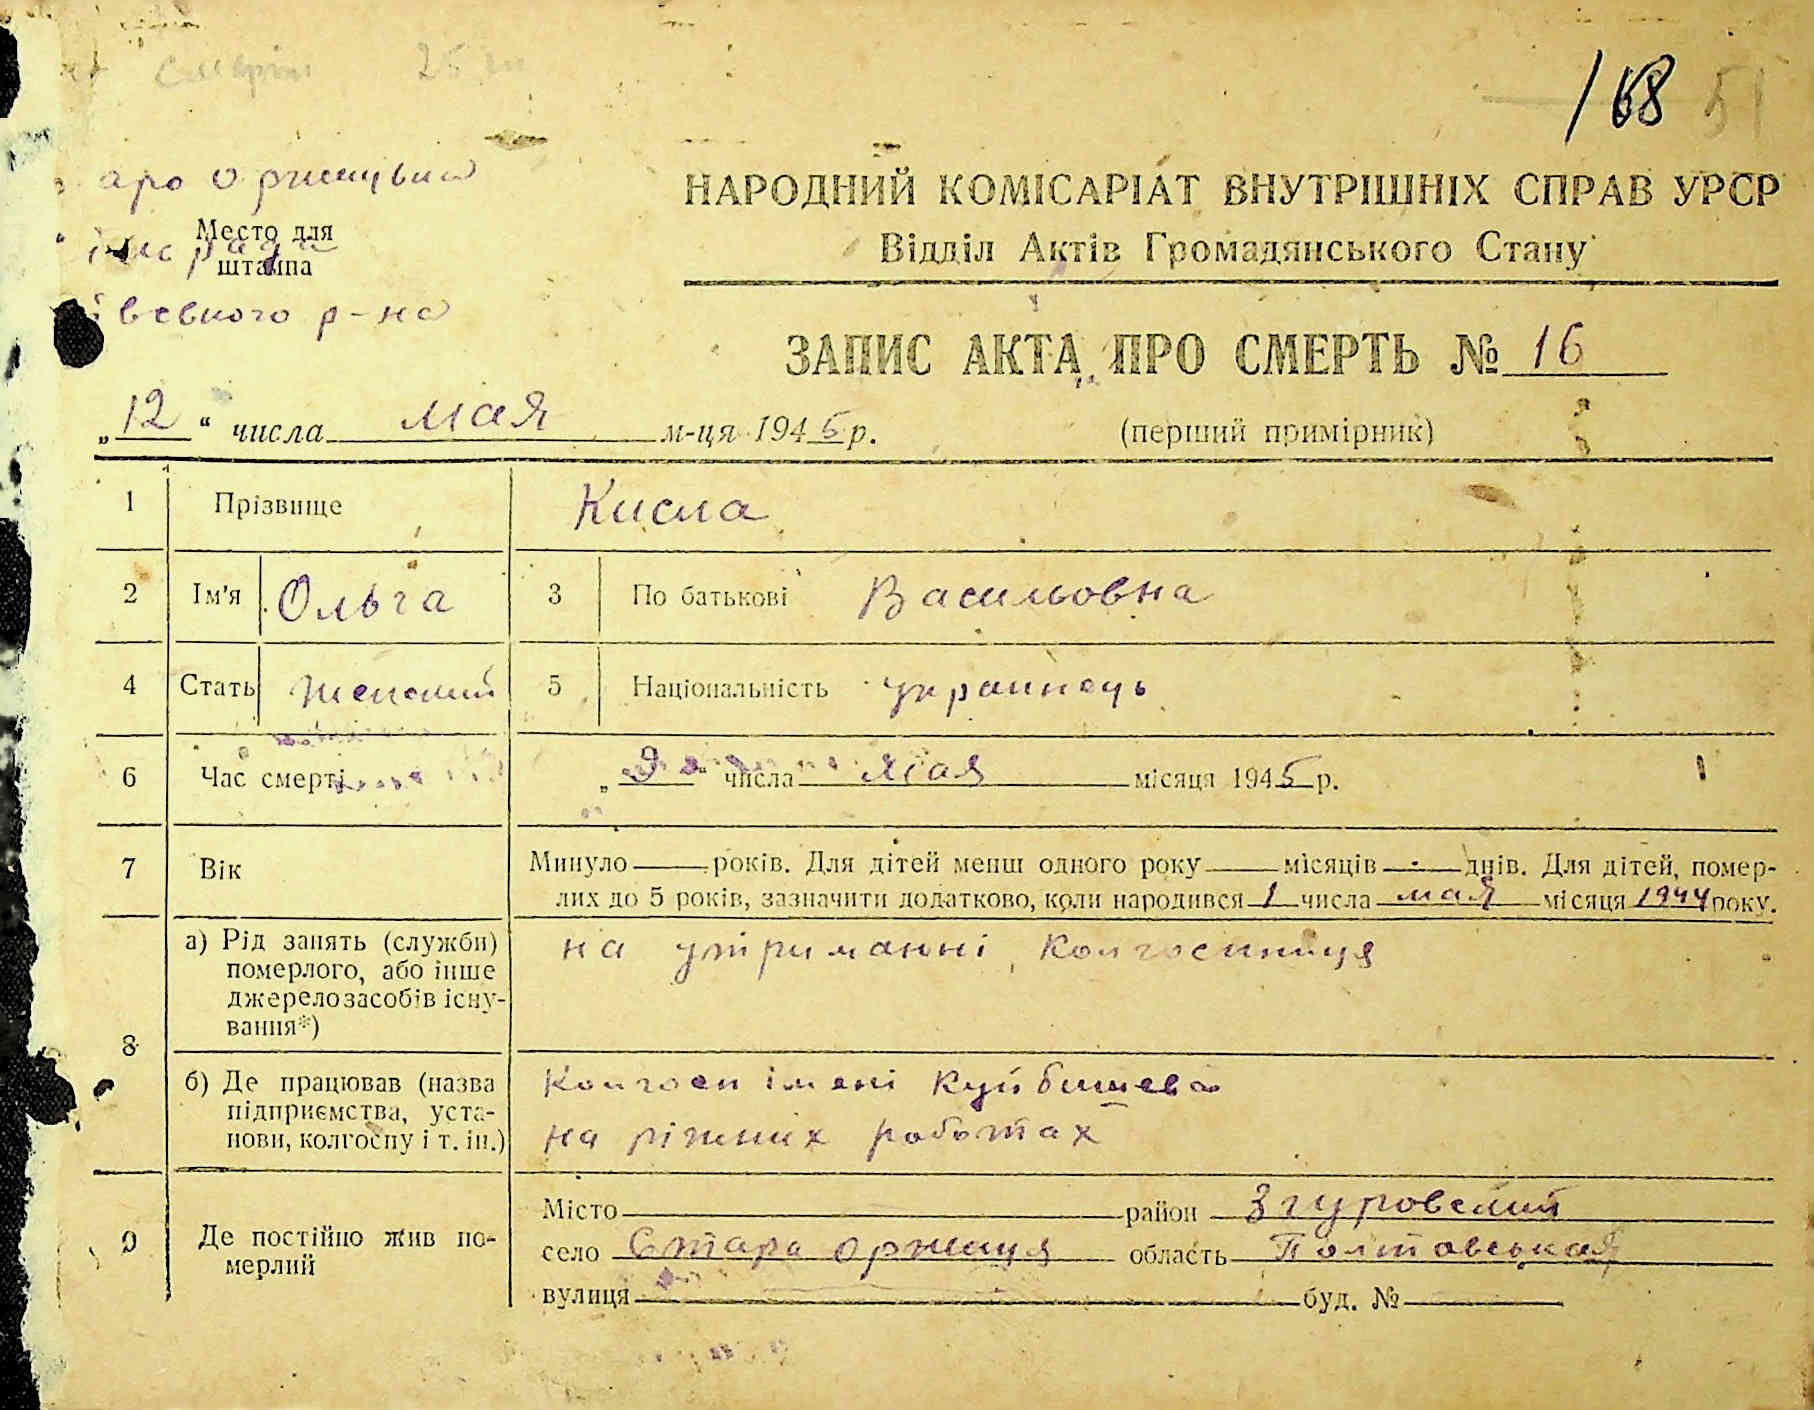 168 51
аро оржицька
Место для
штампа
рада
р-на
НАРОДНИЙ КОМІСАРІАТ ВНУТРІШНІХ СПРАВ УРСР
Відділ Актів Громадянського Стану
ЗАПИС АКТА ПРО СМЕРТЬ № 16
„12“ числа мая м-ця 1945 р.
(перший примірник)
1 Прізвище Кисла
2 Ім'я Ольга 3 По батькові Васильовна
4 Стать Женский 5 Національність украинець
6 Час смерті „9“ числа мая місяця 1945 р.
7 Вік Минуло — років. Для дітей менш одного року — місяців — днів. Для дітей, помер-
лих до 5 років, зазначити додатково, коли народився 1 числа мая місяця 1944 року.
8 а) Рід занять (служби)
померлого, або інше
джерело засобів існу-
вання*)
на утриманні, колгоспниця
б) Де працював (назва
підприємства, уста-
нови, колгоспу і т. ін.)
Колгосп імені Куйбишева
на ріжних роботах
9 Де постійно жив по-
мерлий
Місто — район Згуровский
село Стара оржиця область Полтовськая
вулиця — буд. № —